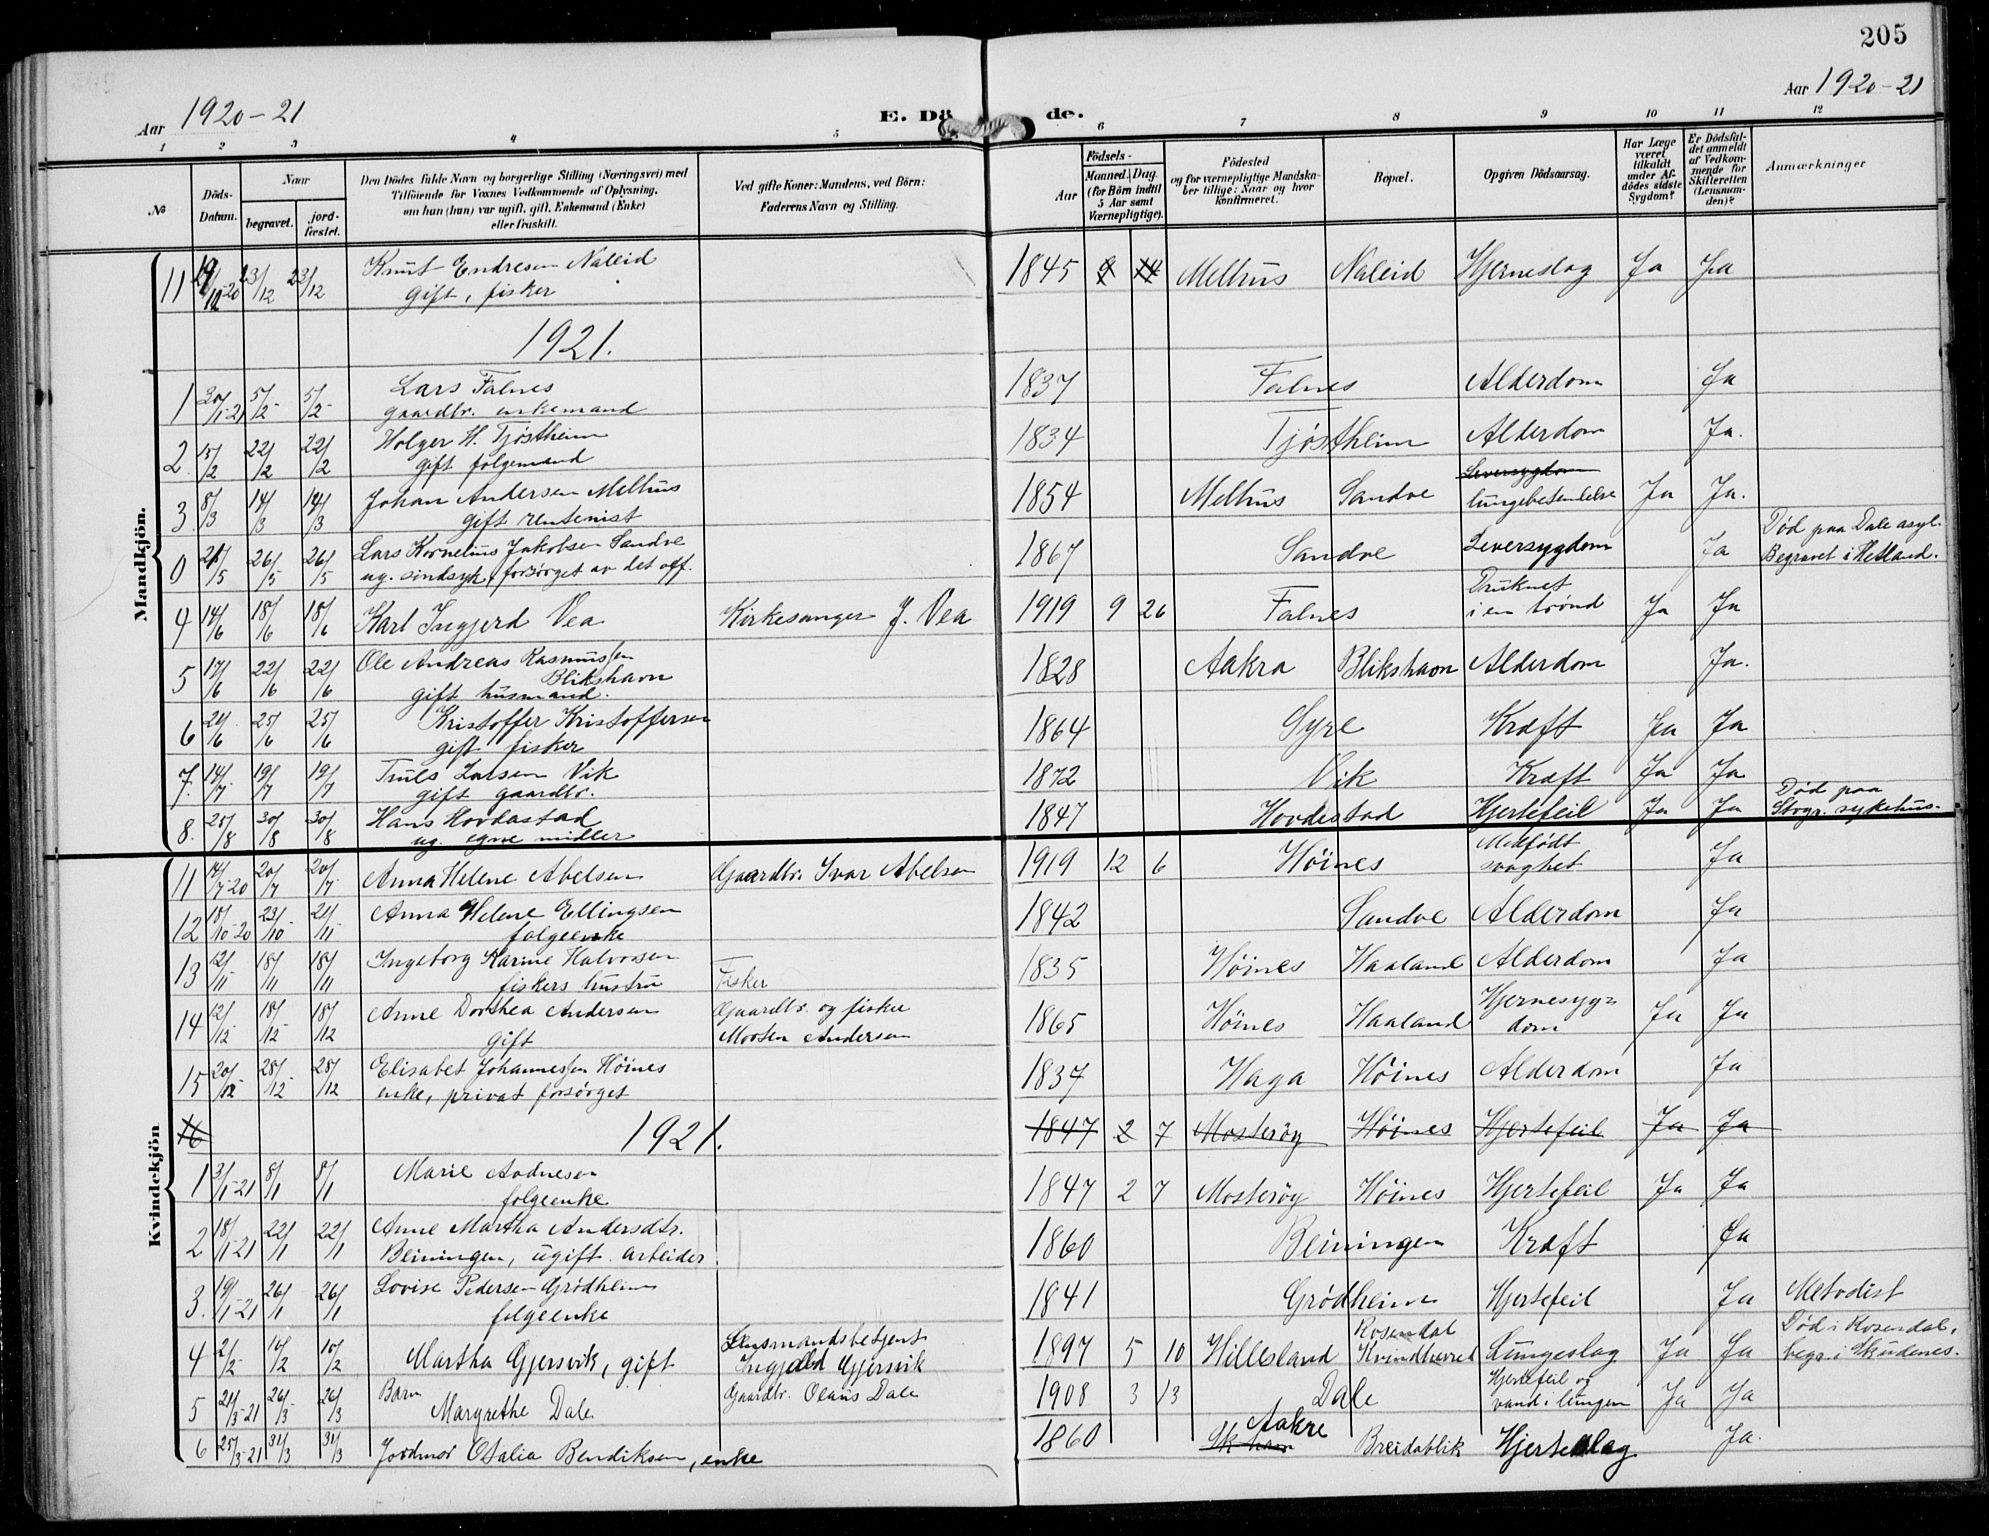 205
Aar 1920-21
E. Dö de.
Aar 1920-21
1 2 3 4 5 6 7 8 9 10 11 12
No
Döds-Datum.
Naar
begravet.
jord-fæstet.
Den Dödes fulde Navn og borgerlige Stilling (Næringsvei) med
Tilföiende for Voxnes Vedkommende af Oplysning,
om han (hun) var ugift, gift, Enkemand (Enke)
eller fraskilt.
Ved gifte Koner: Mandens, ved Börn:
Faderens Navn og Stilling.
Födsels-
Aar
Maaned. Dag.
(for Börn indtil
5 Aar samt
Værnepligtige).
Födested
og for værnepligtige Mandska-
ber tillige: Naar og hvor
Konfirmeret.
Bopæl.
Opgiven Dödsaarsag.
Har Læge
været
tilkaldt
under Af-
dödes sidste
Sygdom?
Er Dödsfal-
det anmeldt
af Vedkom-
mende for
Skifteretten
(Lensman-
den)?
Anmærkninger
Mandkjön.
11 23/12 23/12 Knut Endresen Naleid 1845 Melhus Naleid Hjerneslag Ja Ja
gift, fisker
1921.
1 30/1-21 5/2 5/2 Lars Falnes 1837 Falnes Alderdom Ja
gaardbr. enkemand
2 15/2 22/2 22/2 Holger H. Tjöstheim 1834 Tjöstheim Alderdom Ja.
gift folgemand
3. 8/3 14/3 14/3 Johan Andersen Melhus 1854 Melhus Sandve Leversygdom lungebetendelse Ja Ja.
gift rentenist
0 21/5 26/5 26/5 Lars Kornelius Jakobsen Sandve 1867 Sandve Leversygdom Ja Død paa Dale asyl.
ug. sindsyk, forsörget av det off. Begravet i Hetland.
4 14/6 18/6 18/6 Karl Ingjerd Vea Kirkesanger J. Vea 1919 9 26 Falnes Druknet i en brönd Ja Ja
5 17/6 22/6 22/6 Ole Andreas Rasmussen 1828 Aakra Blikshavn Alderdom Ja.
Blikshavn
gift husmand.
6 21/6 25/6 25/6 Kristoffer Kristoffersen 1864 Syre Kræft Ja Ja
gift fisker
7. 14/7 19/7 19/7 Truls Larsen Vik 1872 Vik Kræft Ja Ja
gift gaardbr.
8. 25/8 30/8 30/8 Hans Hovdastad 1847 Hovdestad Hjertefeil Ja Ja Død paa
ug. egne midler Stvgr. sykehus.
Kvindekjön
11 14/7-20 20/7 20/7 Anna Helene Abelsen Gaardbr. Ivar Abelsen 1919 12 6 Höines Medfødt svaghet Ja
12 18/10-20 23/10 21/11 Anna Helene Ellingsen 1842 Sandve Alderdom Ja
folgeenke
13 12/11 18/11 18/11 Ingeborg Karine Halvorsen Fisker 1835 Höines Haaland Alderdom Ja
fiskers hustru
14 12/12 18/12 18/12 Anne Dorthea Andersen Gaardbr. og fisker 1865 Höines Haaland Hjernesyg-dom Ja Ja
gift Morten Andersen
15 20/12 28/12 28/12 Elisabet Johannessen Höines 1837 Haga Höines Alderdom Ja
enke, privat forsörget
16 1921. 1847 2 7 Mosteröy Höines Hjertefeil Ja Ja
1 3/1-21 8/1 8/1 Marie Aadnesen 1847 2 7 Mosteröy Höines Hjertefeil Ja Ja
folgeenke
2 18/1-21 22/1 22/1 Anne Martha Andersdtr. 1860 Beiningen Kræft Ja
Beiningen, ugift arbeider
3. 19/1-21 26/1 26/1 Lovise Pedersen Grödheim 1841 Grödheim Hjertefeil Ja Metodist
folgeenke
4 2/2 10/2 10/2 Martha Gjersvik, gift Lensmandsbetjent Ingjald Gjersvik 1897 5 10 Hillesland Rosendal Kvindherred Lungeslag Ja Ja Død i Rosendal, begr. i Skudenes.
5 21/3-21 26/3 26/3 Barn Margrethe Dale Gaardbr. Olaus Dale 1908 3 13 Dale Hjertefeil og vand i lungen Ja Ja
6 25/3-21 31/3 31/3 Jordmor Otalia Bendiksen, enke 1860 Aakre Breidablik Hjerteslag Ja.